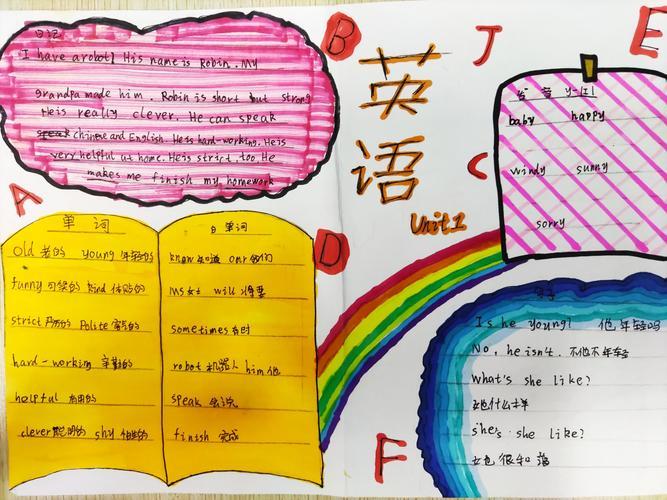 日记
I have a robot! His name is Robin. My
grandpa made him. Robin is short but strong
He is really clever. He can speak
chinese and English. He is hard-working. He is
very helpful at home. He is strict, too He
makes me finish my homework
B
A
D
英语
Unit 1
J
C
E
F
y=[i]
baby happy
windy sunny
sorry
单词
old 老的 young 年轻的
funny 可笑的 kind 体贴的
strict 严厉的 Polite
hard-working 辛勤的
helpful 有用的
clever 聪明的 shy
日单词
know 知道 our 我们
Ms 女士 will 将要
sometimes 有时
robot 机器人 him 他
speak 会说
finish 完成
句子
Is he young? 他年轻吗
No, he isn't. 不他不年轻
What's she like?
她什么样
she's she like?
她很和蔼